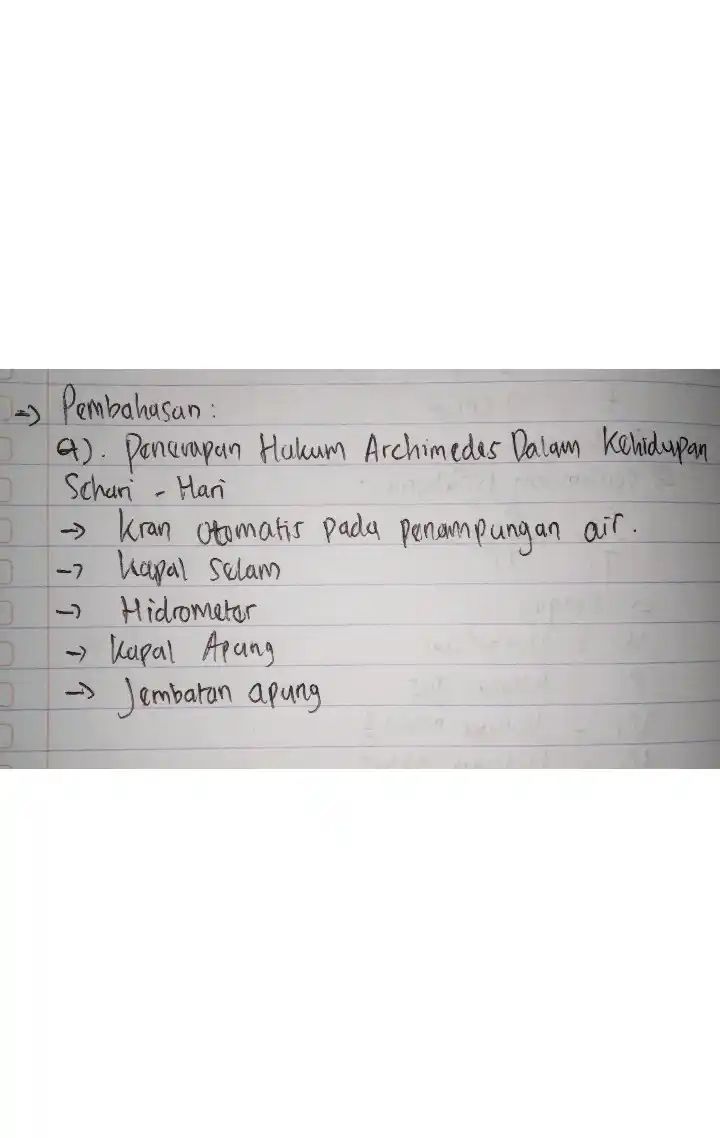 => Pembahasan :
a). Penerapan Hukum Archimedes Dalam Kehidupan
Sehari - Hari
→ Kran otomatis pada penampungan air.
→ Kapal Selam
→ Hidrometer
→ Kapal Apung
→ Jembatan apung